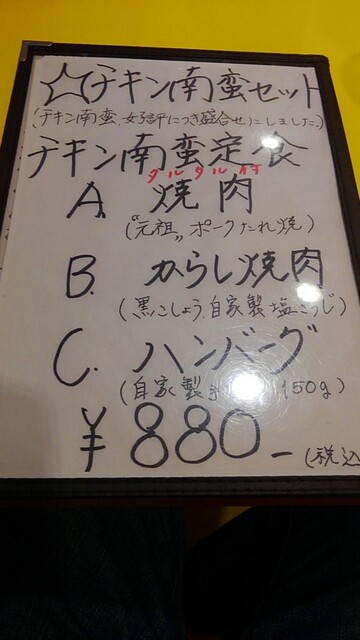 ☆チキン南蛮セット
(チキン南蛮、好評につき盛合せにしました。)
チキン南蛮定食
タルタル付
A. 焼肉
("元祖" ポークたれ焼)
B. からし焼肉
(黒こしょう、自家製塩こうじ)
C. ハンバーグ
(自家製 150g)
¥880- (税込